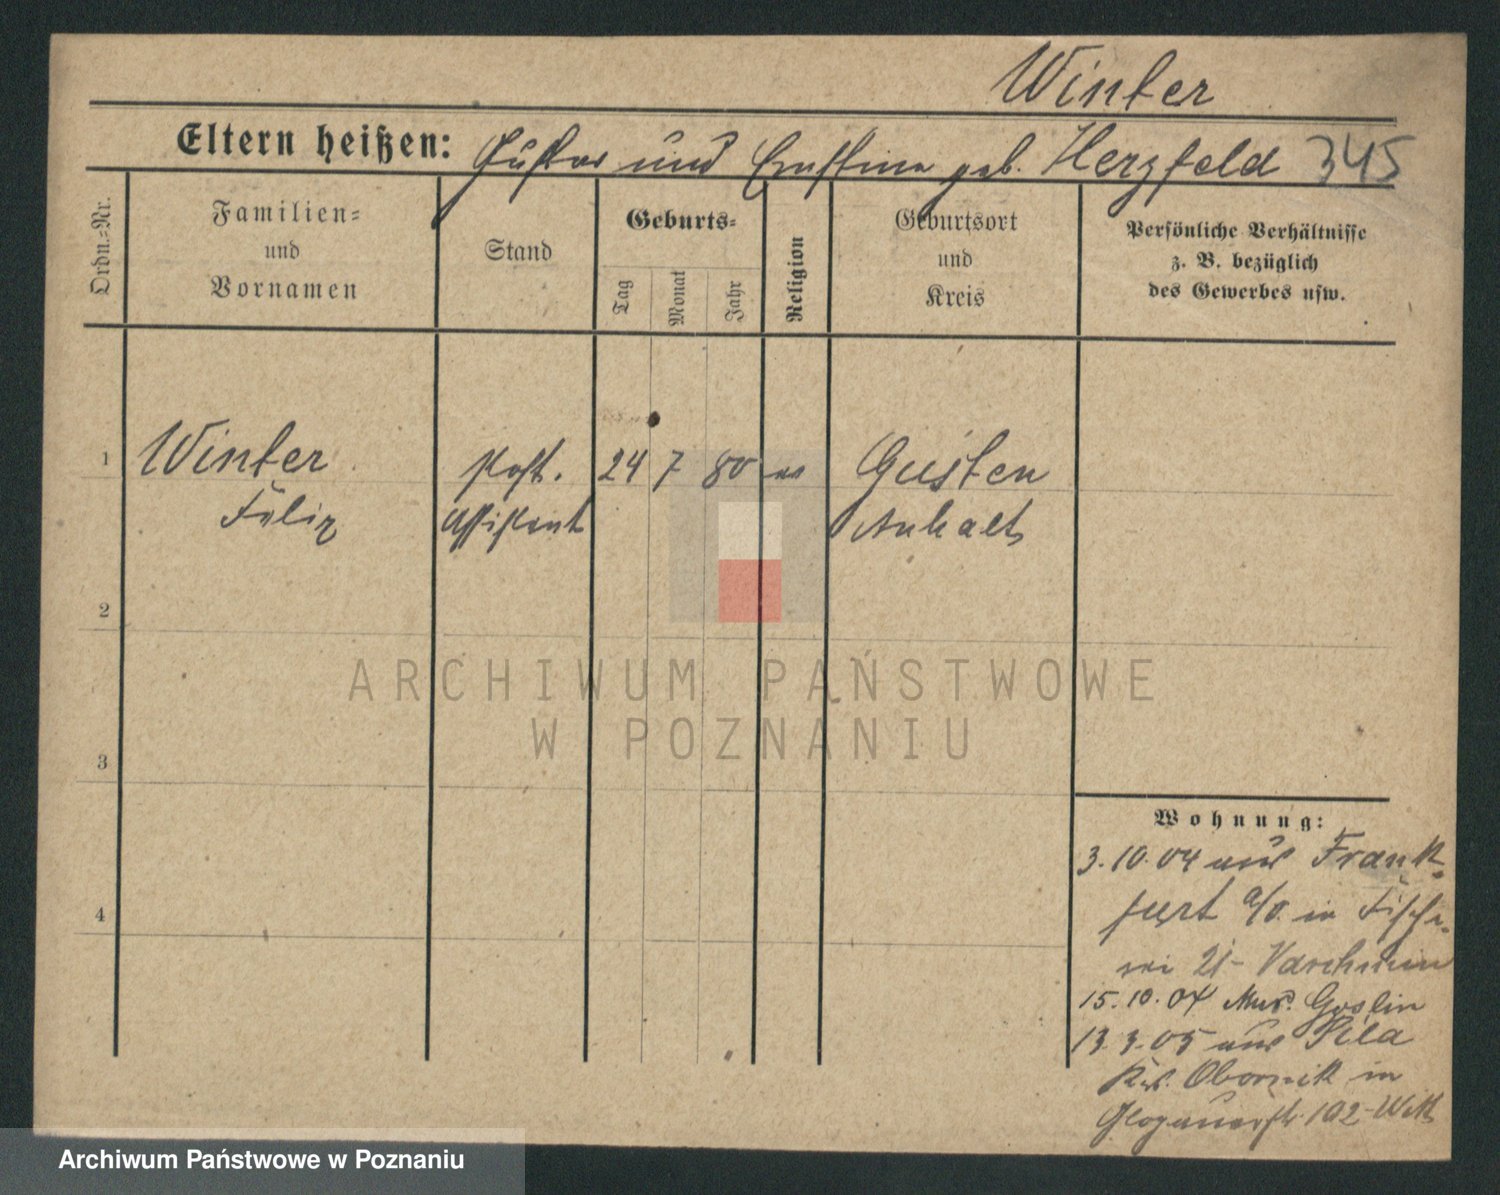 Winter
Eltern heißen: Gustav und Ernstine geb. Herzfeld 345
Ordn.-Nr.
Familien-
und
Vornamen
Stand
Geburts-
Tag
Monat
Jahr
Religion
Geburtsort
und
Kreis
Persönliche Verhältnisse
z. B. bezüglich
des Gewerbes usw.
1 Winter Post. 24 7 80 Güsten
Felix Assistent Anhalt
2
3
4
Wohnung:
3.10.04 aus Frank-
furt a/O. in Fische-
rei 21-
15.10.04 Goslin
13.3.05 aus Pila
Krs. Obornik in
Glogauerstr. 102-
ARCHIWUM PAŃSTWOWE
W POZNANIU
Archiwum Państwowe w Poznaniu